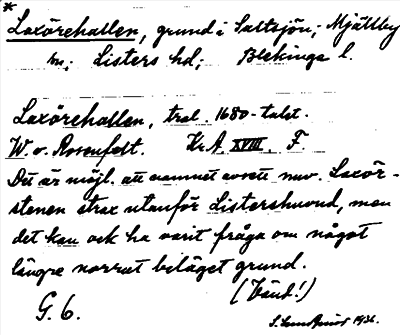 *
Laxörehallen, grund i Saltsjön; Mjällby
sn; Listers hd; Blekinge l.
Laxörehallen, trol. 1680-talet.
W. v. Rosenfelt. Kr. A. XVIII. F.
Det är möjl. att namnet avsett nuv. Laxör-
stenen strax utanför Listershuvud, men
det kan ock ha varit fråga om något
längre norrut beläget grund.
(Vänd!)
G. 6.
1936.